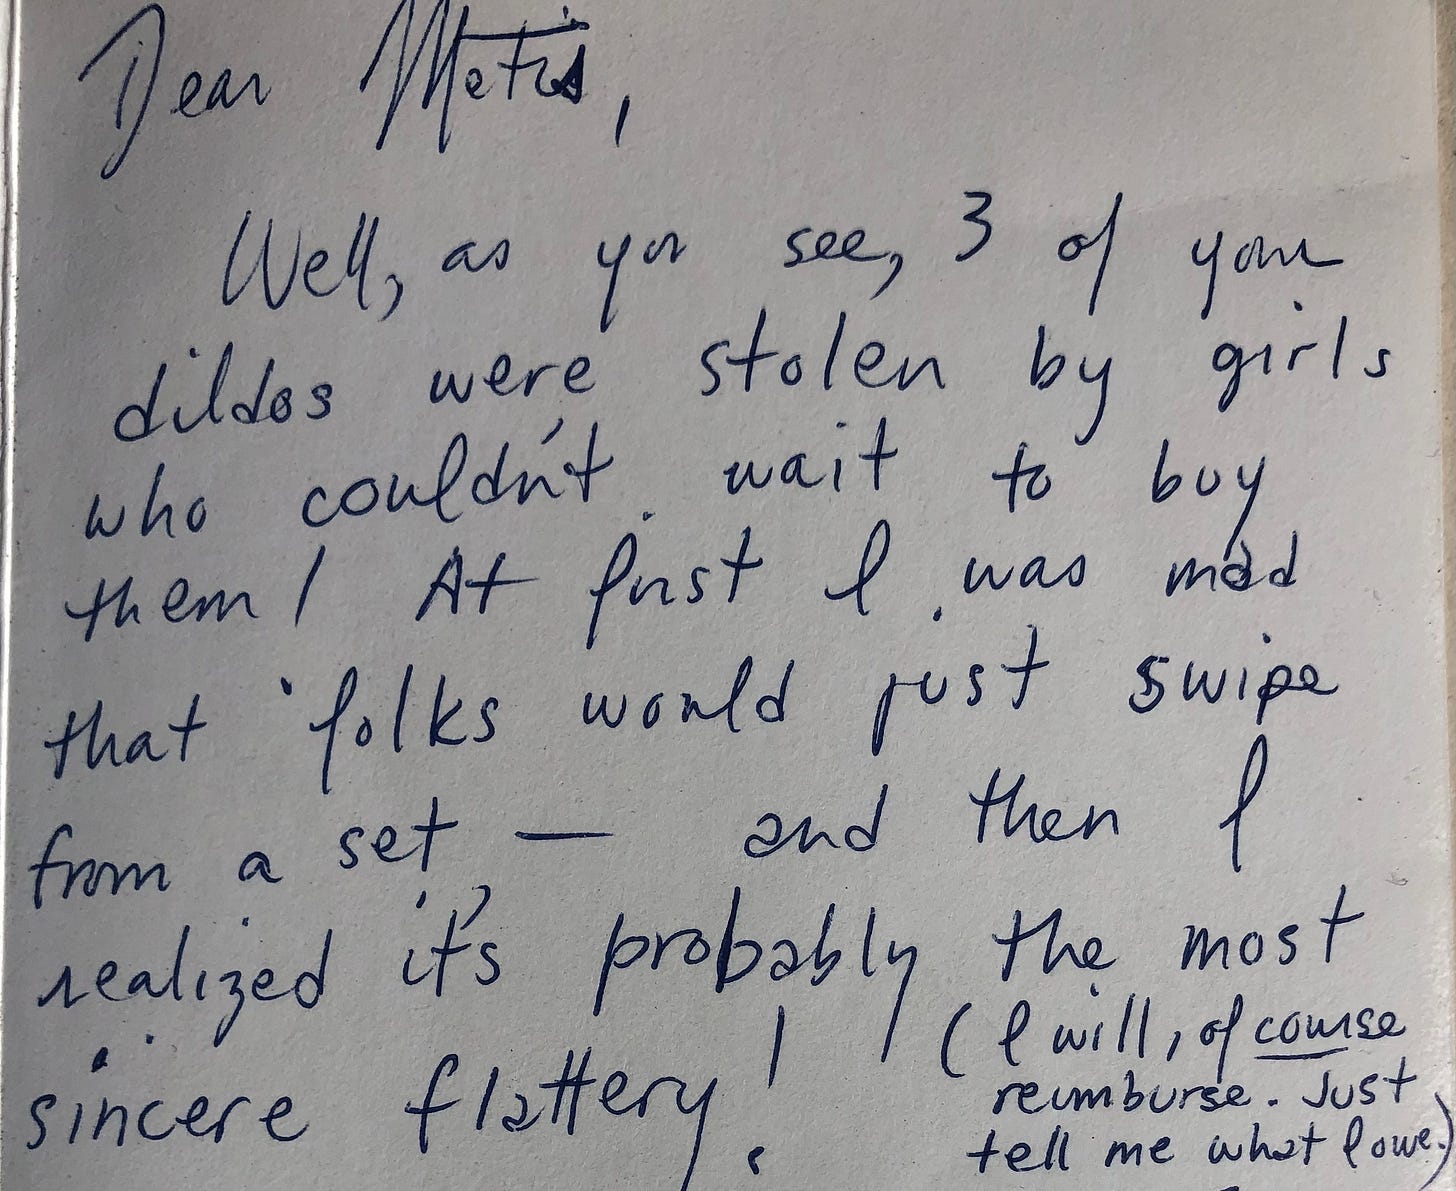 Dear Metis,
Well, as you see, 3 of your
dildos were stolen by girls
who couldn't wait to buy
them! At first I was mad
that folks would just swipe
from a set — and then I
realized it's probably the most
sincere flattery! (I will, of course
reimburse. Just
tell me what I owe.)